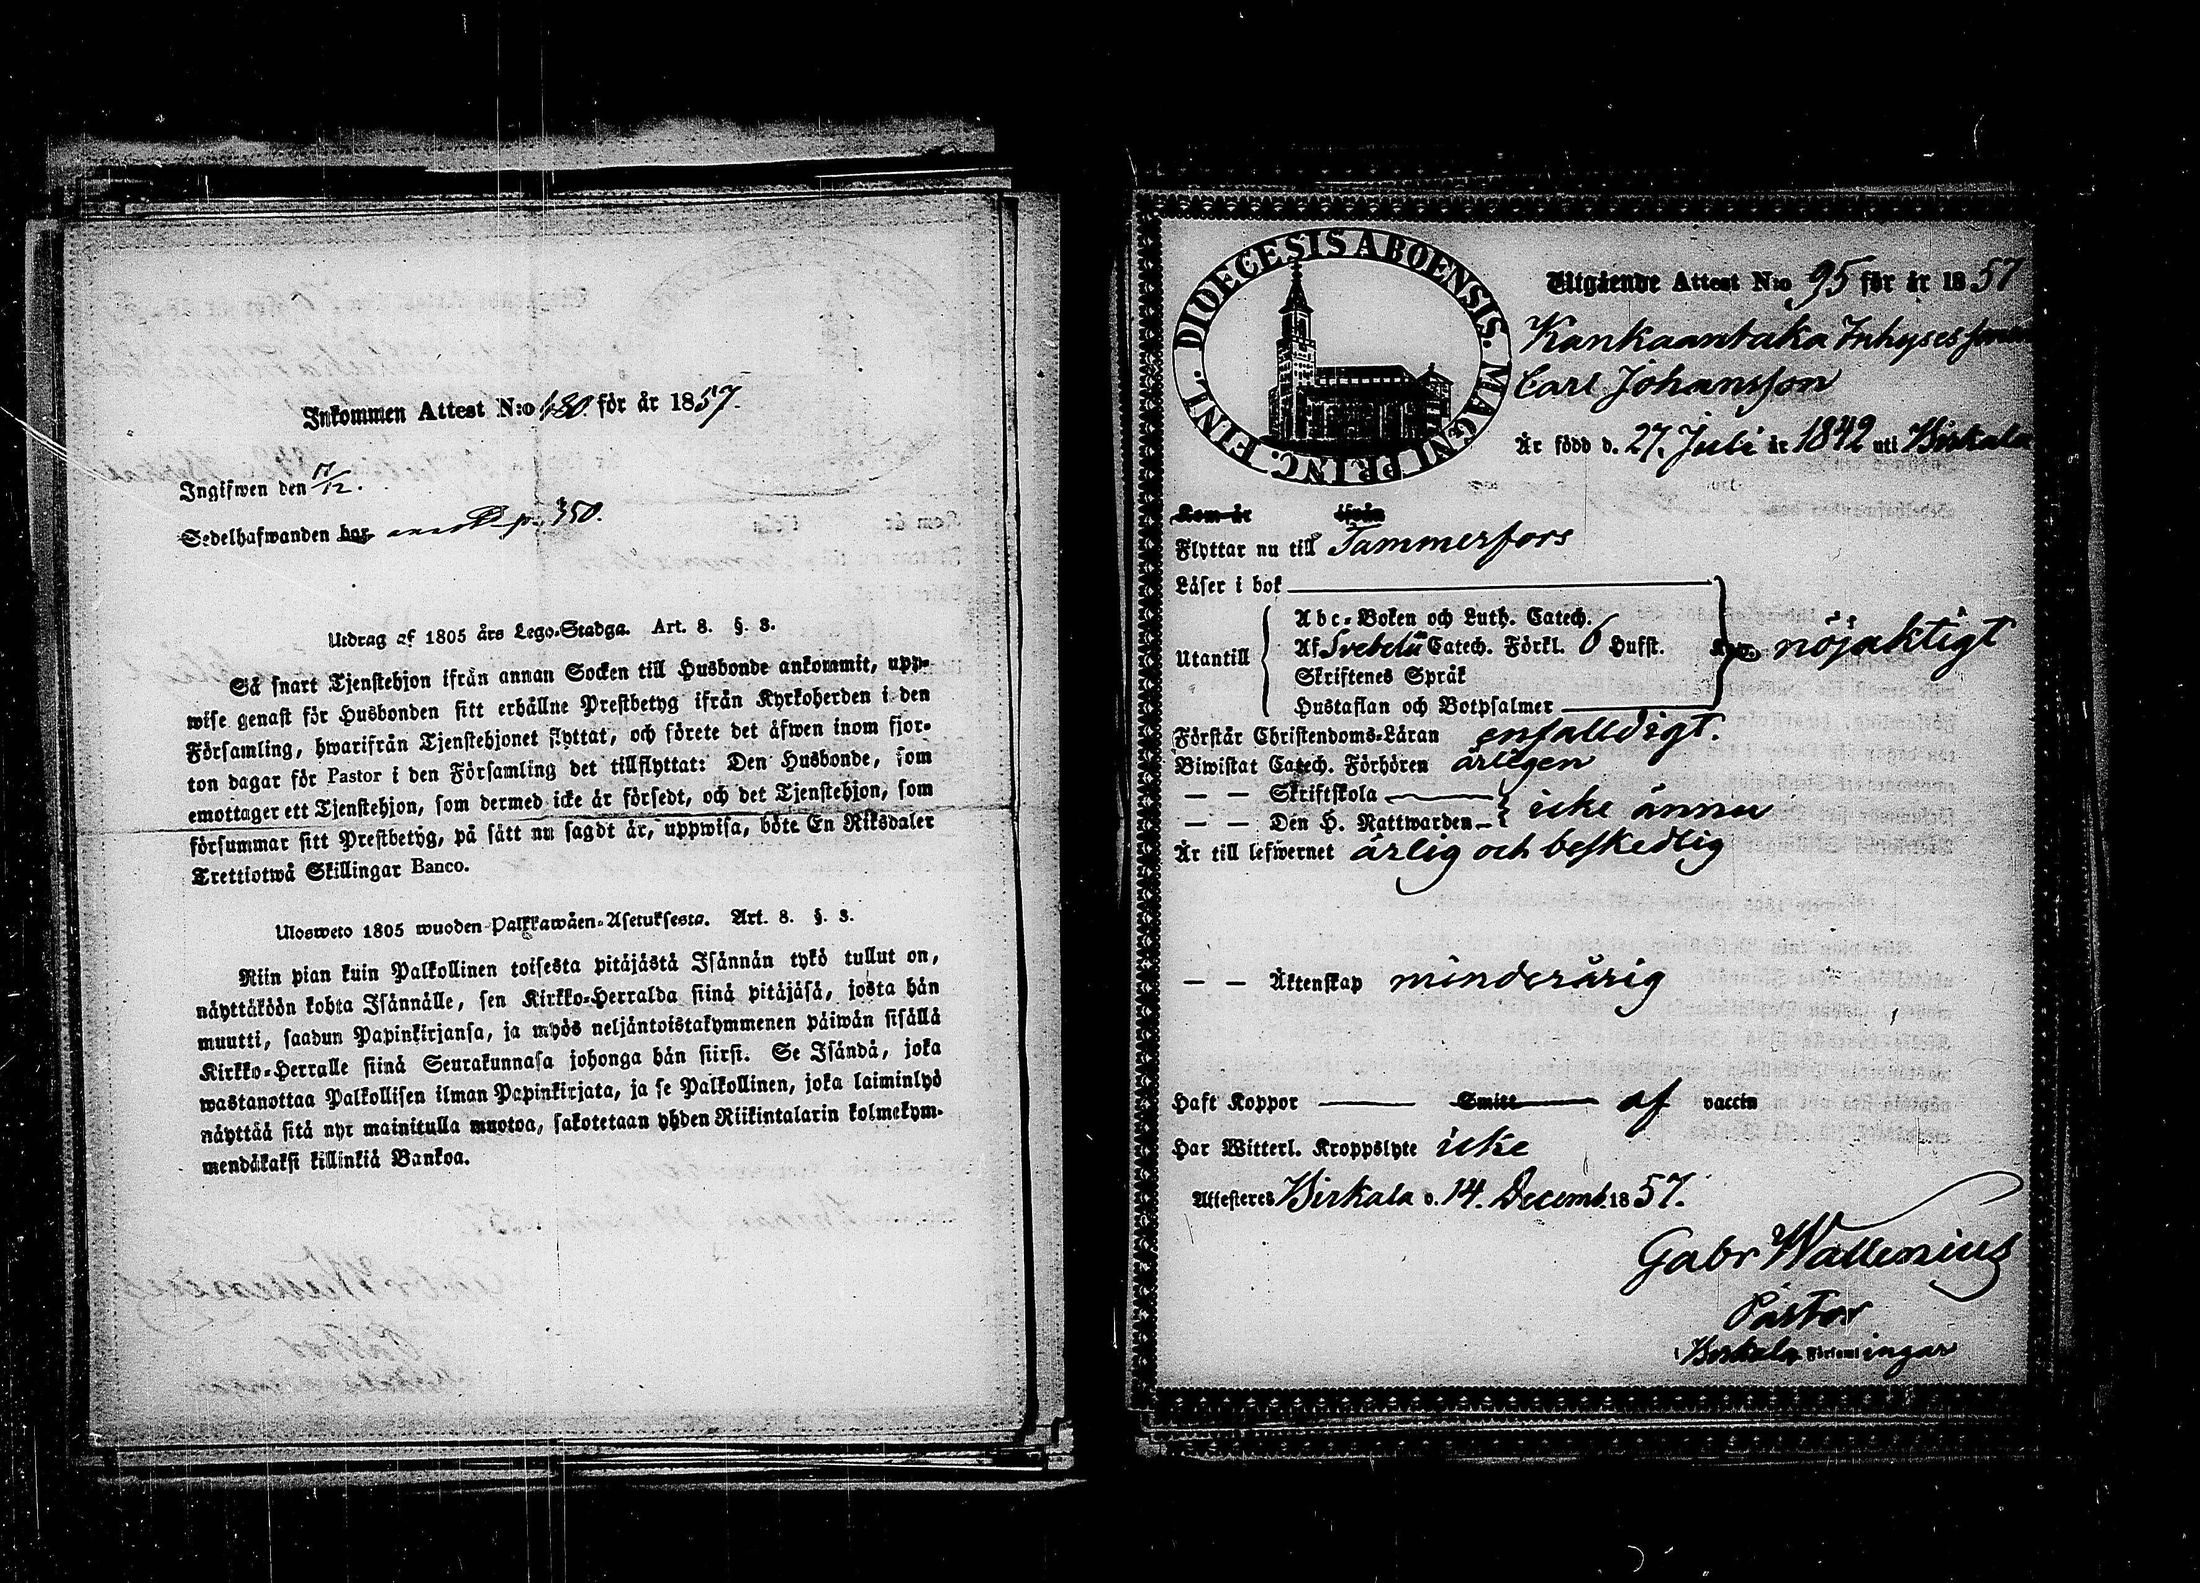 Inkommen Attest N:o 180 för år 1857.
Ingifwen den 17/12.
Sedelhafwanden har p. 350.
Utdrag af 1805 års Lego-Stadga. Art. 8. §. 3.
Så snart Tjenstehjon ifrån annan Socken till Husbonde ankommit, upp-
wise genast för Husbonden sitt erhållne Prestbetyg ifrån Kyrkoherden i den
Församling, hwarifrån Tjenstehjonet flyttat, och förete det äfwen inom fjor-
ton dagar för Pastor i den Församling det tillflyttat: Den Husbonde, som
emottager ett Tjenstehjon, som dermed icke är försedt, och det Tjenstehjon, som
försummar sitt Prestbetyg, på sätt nu sagdt är, uppwisa, böte En Riksdaler
Trettiotwå Skillingar Banco.
Ulosweto 1805 wuoden Palkkawäen-Asetuksesta. Art. 8. §. 3.
Niin pian kuin Palkollinen toisesta pitäjästä Isännän tykö tullut on,
näyttäköön kohta Isännälle, sen Kirkko-Herralda siinä pitäjäsä, josta hän
muutti, saadun Papinkirjansa, ja myös neljäntoistakymmenen päiwän sisällä
Kirkko-Herralle siinä Seurakunnasa johonga hän siirsi. Se Isändä, joka
wastanottaa Palkollisen ilman Papinkirjata, ja se Palkollinen, joka laiminlyö
näyttää sitä nyt mainitulla muotoa, sakotetaan yhden Riikintalarin kolmekym-
mendäkaksi killinkiä Bankoa.
DIOECESIS ABOENSIS. MAGNI PRINC. FINL.
Utgående Attest N:o 95 för år 1857
Kankaantaka Inhyses
Carl Johansson
Är född d. 27. Juli år 1842 uti Birkala
Kom år ifrån
Flyttar nu till Tammerfors
Läser i bok
Utantill
Abc-Boken och Luth. Catech.
Af Svebelii Catech. Förkl. 6 Hufst. nöjaktigt
Skriftenes Språk
Hustaflan och Botpsalmer
Förstår Christendoms-Läran enfalldigt.
Biwistat Catech. Förhören årligen
— — Skriftskola
— — Den H. Nattwarden icke ännu
Är till lefwernet ärlig och beskedlig
— — Äktenskap minderårig
Haft Koppor Smitt af vaccin
Har Witterl. Kroppslyte icke
Attesteres Birkala d. 14. Decemb. 1857.
Gabr Wallenius
Pastor
i Birkala Församlingar